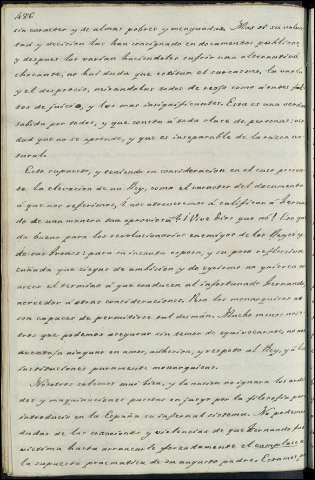 486
sin caracter y de almas pobres y menguadas. Mas si su volun
tad y decision las han consignado en documentos públicos,
y despues las varían haciendolas sufrir una alternativa
chocante, no hai duda que escitan el sarcasmo, la
y el desprecio, mirandolas todos de reojo como á entes fal
tos de juicio, y los mas insignificantes. Esta es una verdad
sabida por todos, y que consta á toda clase de personas; ver
dad que no se aprende, y que es inseparable de la razon na
tural.
Esto supuesto, y teniendo en consideracion en el caso presen
te la elevacion de un Rey, como el monitor del documento
á que nos referimos, ¿nos atreveremos á calificar á Fernan
do de una manera tan ¡Vive Dios que no! Eso que
da bueno para los revolucionarios enemigos de los Reyes y
de sus tronos: para su incauta esposa, y su poco reflexiva
cuñada que ciegas de ambicion y de egoismo no quieren co
nocer el término á que conducen al infortunado Fernando,
acreedor á otras consideraciones. Pero los monarquicos no
son capaces de permitirse tal desmán. Mucho menos noso
tros que podemos asegurar sin temor de equivocarnos, no nos
aventaja ninguno en amor, adhesion, y respeto al Rey, y á las
instituciones puramente monarquicas.
Nosotros sabemos mui bien, y la nacion no ignora los ardi
des y maquinaciones puestas en juego por la filosofía para
introducir en la España su infernal sistema. No podemos
dudar de las coacciones y violencias de que Fernando fue
victima hasta arrancarle forzadamente el cumplase á
la supuesta pracmatica de su augusto padre. Estamos